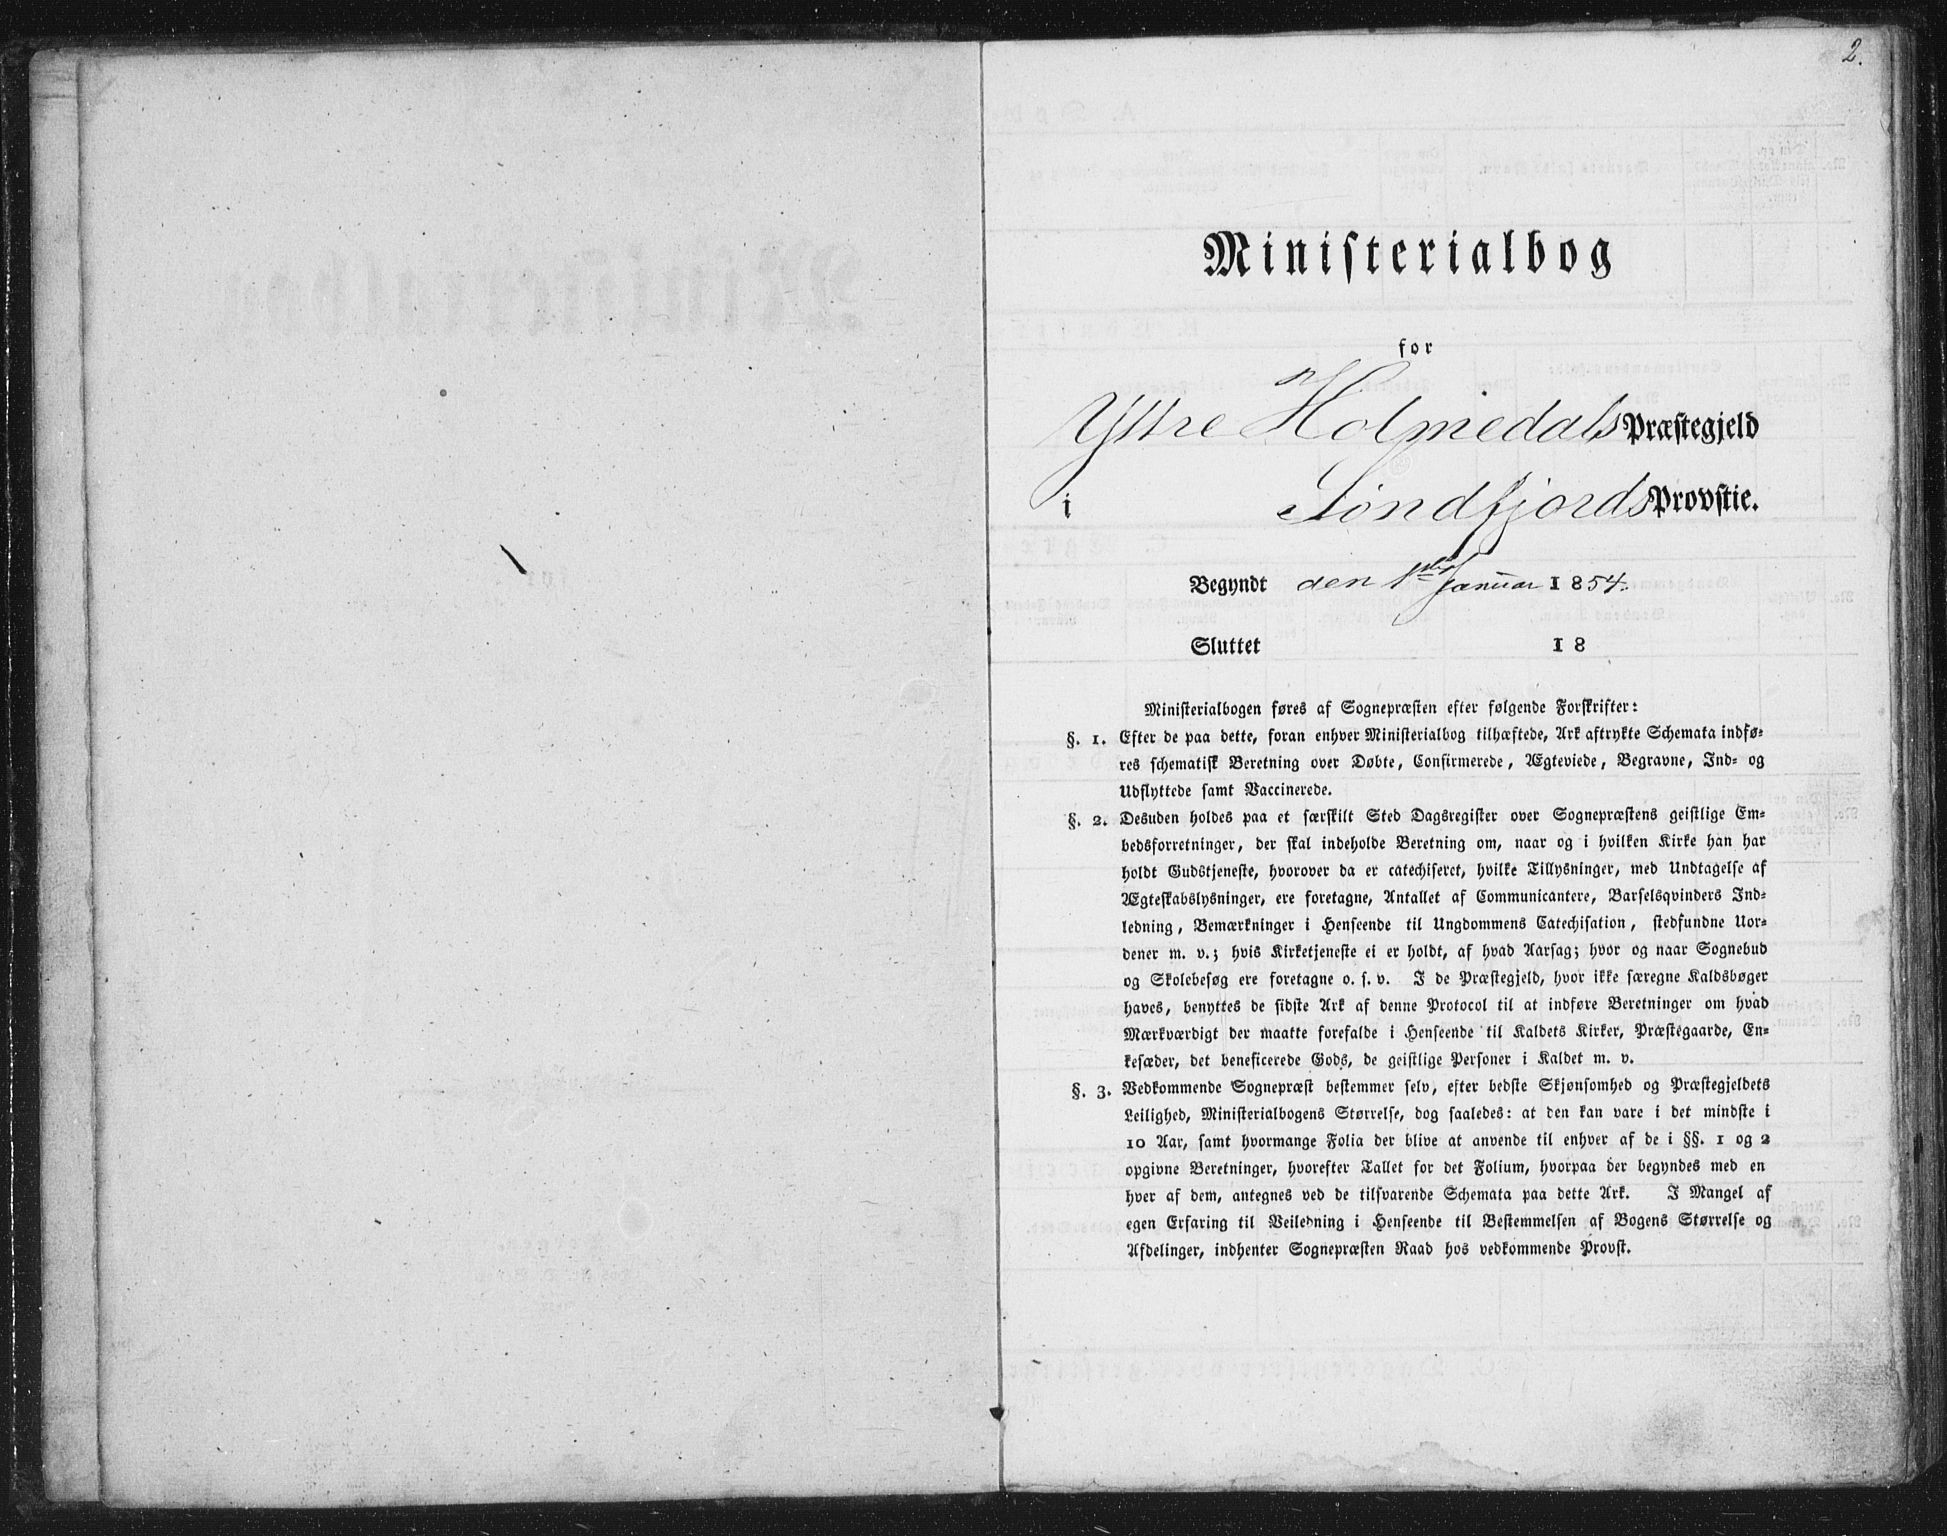 2.
Ministerialbog
for
Yttre Holmedals Præstegjeld
i Söndfjords Provstie.
Begyndt den 1ste Januar 1854.
Sluttet 18
Ministerialbogen føres af Sognepræsten efter følgende Forskrifter:
§. 1. Efter de paa dette, foran enhver Ministerialbog tilhæftede, Ark aftrykte Schemata indfø-
res schematisk Beretning over Døbte, Confirmerede, Ægteviede, Begravne, Ind- og
Udflyttede samt Vaccinerede.
§. 2. Desuden holdes paa et særskilt Sted Dagsregister over Sognepræstens geistlige Em-
bedsforretninger, der skal indeholde Beretning om, naar og i hvilken Kirke han har
holdt Gudstjeneste, hvorover da er catechiseret, hvilke Tillysninger, med Undtagelse af
Ægteskabslysninger, ere foretagne, Antallet af Communicantere, Barselsqvinders Ind-
ledning, Bemærkninger i Henseende til Ungdommens Catechisation, stedfundne Uor-
dener m. v.; hvis Kirketjeneste ei er holdt, af hvad Aarsag; hvor og naar Sognebud
og Skolebesøg ere foretagne o. s. v. I de Præstegjeld, hvor ikke særegne Kaldsbøger
haves, benyttes de sidste Ark af denne Protocol til at indføre Beretninger om hvad
Mærkværdigt der maatte forefalde i Henseende til Kaldets Kirker, Præstegaarde, En-
kesæder, det beneficerede Gods, de geistlige Personer i Kaldet m. v.
§. 3. Vedkommende Sognepræst bestemmer selv, efter bedste Skjønsomhed og Præstegjeldets
Leilighed, Ministerialbogens Størrelse, dog saaledes: at den kan vare i det mindste i
10 Aar, samt hvormange Folia der blive at anvende til enhver af de i §§. 1 og 2
opgivne Beretninger, hvorefter Tallet for det Folium, hvorpaa der begyndes med en
hver af dem, antegnes ved de tilsvarende Schemata paa dette Ark. I Mangel af
egen Erfaring til Veiledning i Henseende til Bestemmelsen af Bogens Størrelse og
Afdelinger, indhenter Sognepræsten Raad hos vedkommende Provst.